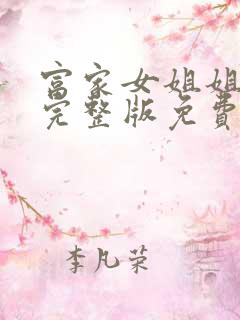 富家女姐姐
完整版免费
李凡荣